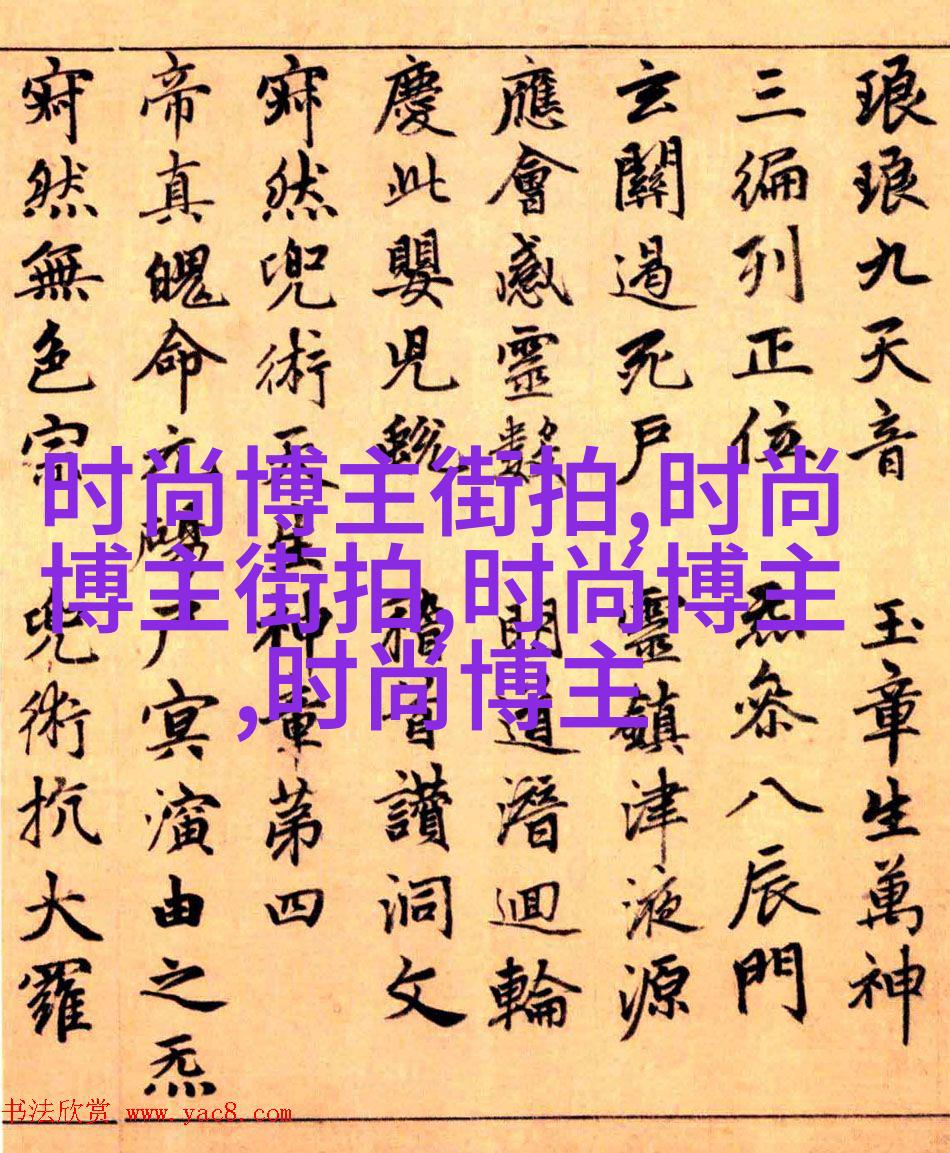 琅琅九天音 玉章生萬神
三徧列正位 炁叅八辰門
玄關過死戶 靈鎮津液源
應會感靈數 道潛迴輪
慶此嬰兒 稽首讚洞文
寂然兜術天生神章第四
帝真魄命元陽戶冥演由之炁
寂然無色宗兜術抗大羅
时尚博主街拍,时尚
博主街拍,时尚博主
,时尚博主
书法欣赏 www.yac8.com